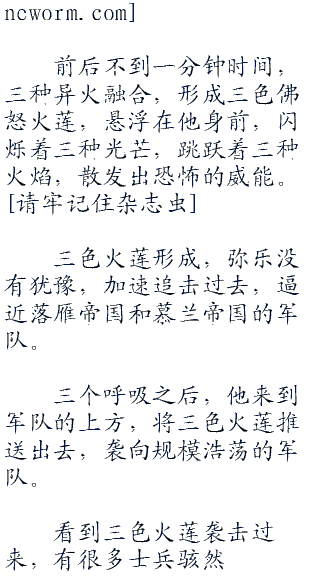 ncworm.com]
前后不到一分钟时间，
三种异火融合，形成三色佛
怒火莲，悬浮在他身前，闪
烁着三种光芒，跳跃着三种
火焰，散发出恐怖的威能。
[请牢记住杂志虫]
三色火莲形成，弥乐没
有犹豫，加速追击过去，逼
近落雁帝国和慕兰帝国的军
队。
三个呼吸之后，他来到
军队的上方，将三色火莲推
送出去，袭向规模浩荡的军
队。
看到三色火莲袭击过
来，有很多士兵骇然